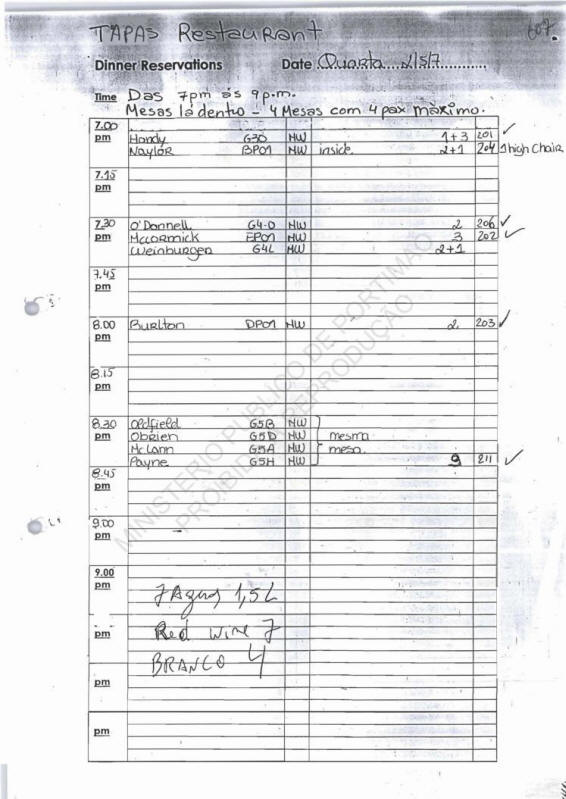 TAPAS Restaurant
607.
Dinner Reservations Date Quarta 2/5/7
Time Das 7pm ás 9p.m.
Mesas la dentro - 4 Mesas com 4 pax màximo.
7.00 pm
Handy G30 MW 1+3 201 ✓
Naylor BP01 MW inside. 2+1 204 1 high chair
7.15 pm
7.30 O'Donnell G4-O MW 2 206 ✓
pm McCormick EP01 MW 3 202 ✓
Weinburger G4L MW 2+1
7.45 pm
8.00 Buelton DP01 MW 2. 203 ✓
pm
8.15 pm
8.30 Oldfield G5B MW
pm Obrien G5D MW mesma
Mc Cann G5A MW mesa.
Payne G5H MW 9 211 ✓
8.45 pm
9.00 pm
9.00 pm
7 Aguas 1,5L
pm Red wine 7
BRANCO 4
pm
pm
MINISTÉRIO PÚBLICO DE PORTIMÃO
PROIBIDA A REPRODUÇÃO